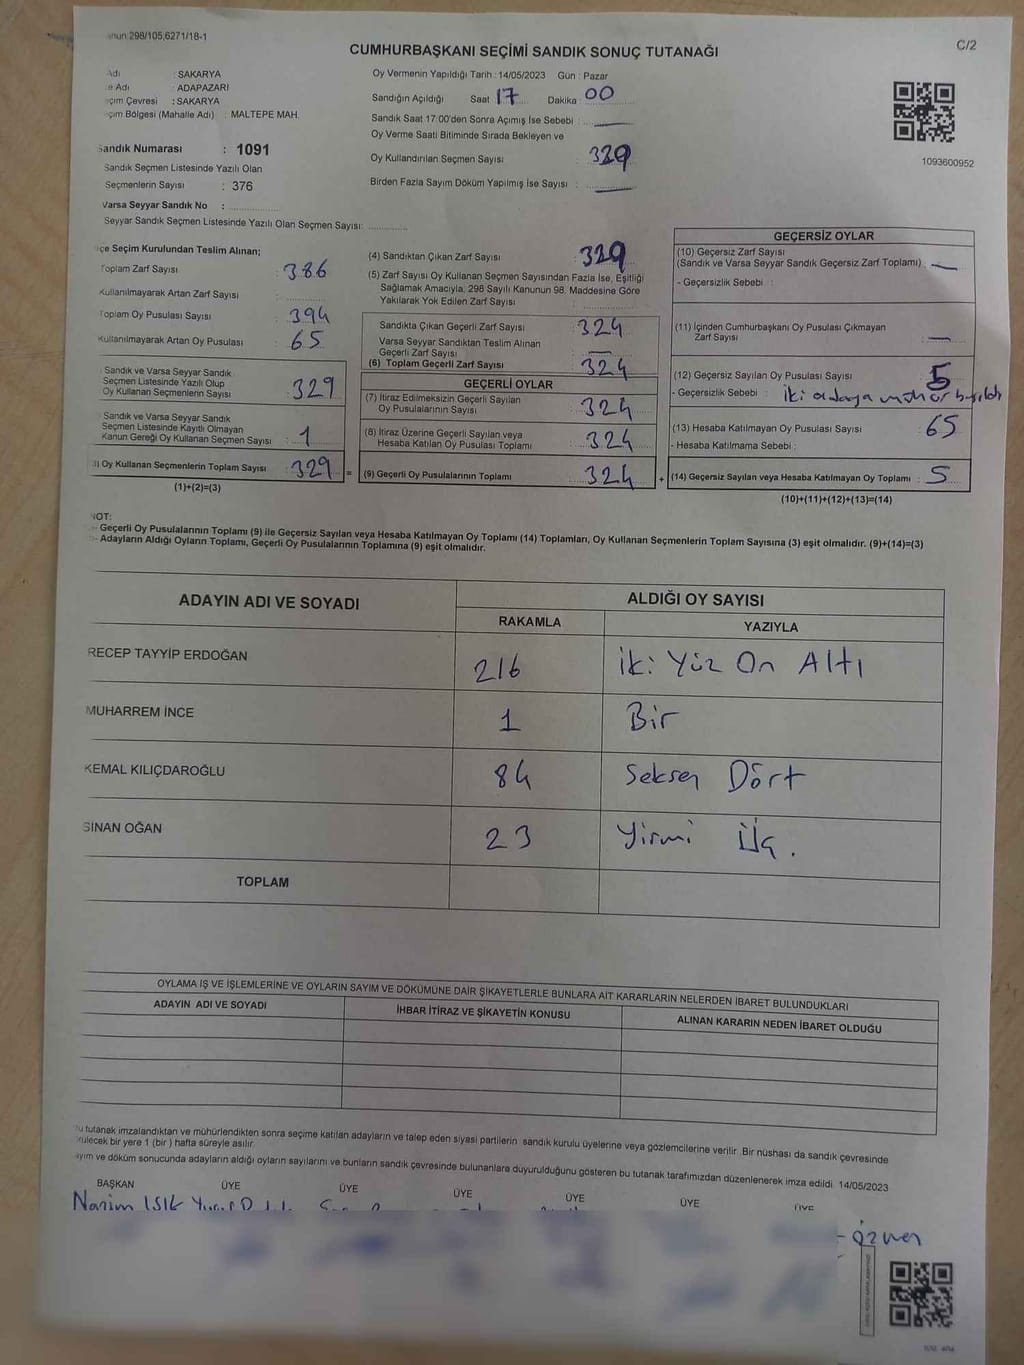 298/105,6271/18-1
C/2
CUMHURBAŞKANI SEÇİMİ SANDIK SONUÇ TUTANAĞI
Adı : SAKARYA
e Adı : ADAPAZARI
çim Çevresi : SAKARYA
çim Bölgesi (Mahalle Adı) : MALTEPE MAH.
Sandık Numarası : 1091
Sandık Seçmen Listesinde Yazılı Olan
Seçmenlerin Sayısı : 376
Varsa Seyyar Sandık No :
Seyyar Sandık Seçmen Listesinde Yazılı Olan Seçmen Sayısı:
Oy Vermenin Yapıldığı Tarih : 14/05/2023 Gün : Pazar
Sandığın Açıldığı Saat 17 Dakika 00
Sandık Saat 17:00'den Sonra Açımış İse Sebebi :
Oy Verme Saati Bitiminde Sırada Bekleyen ve
Oy Kullandırılan Seçmen Sayısı : 329
Birden Fazla Sayım Döküm Yapılmış İse Sayısı :
1093600952
çe Seçim Kurulundan Teslim Alınan;
Toplam Zarf Sayısı : 386
Kullanılmayarak Artan Zarf Sayısı :
Toplam Oy Pusulası Sayısı : 394
Kullanılmayarak Artan Oy Pusulası : 65
Sandık ve Varsa Seyyar Sandık
Seçmen Listesinde Yazılı Olup
Oy Kullanan Seçmenlerin Sayısı : 329
Sandık ve Varsa Seyyar Sandık
Seçmen Listesinde Kayıtlı Olmayan
Kanun Gereği Oy Kullanan Seçmen Sayısı : 1
) Oy Kullanan Seçmenlerin Toplam Sayısı : 329 =
(1)+(2)=(3)
(4) Sandıktan Çıkan Zarf Sayısı : 329
(5) Zarf Sayısı Oy Kullanan Seçmen Sayısından Fazla İse, Eşitliği
Sağlamak Amacıyla, 298 Sayılı Kanunun 98. Maddesine Göre
Yakılarak Yok Edilen Zarf Sayısı :
Sandıkta Çıkan Geçerli Zarf Sayısı : 324
Varsa Seyyar Sandıktan Teslim Alınan
Geçerli Zarf Sayısı :
(6) Toplam Geçerli Zarf Sayısı : 324
GEÇERLİ OYLAR
(7) İtiraz Edilmeksizin Geçerli Sayılan
Oy Pusulalarının Sayısı : 324
(8) İtiraz Üzerine Geçerli Sayılan veya
Hesaba Katılan Oy Pusulası Toplamı : 324
(9) Geçerli Oy Pusulalarının Toplamı : 324 +
GEÇERSİZ OYLAR
(10) Geçersiz Zarf Sayısı
(Sandık ve Varsa Seyyar Sandık Geçersiz Zarf Toplamı) :
- Geçersizlik Sebebi :
(11) İçinden Cumhurbaşkanı Oy Pusulası Çıkmayan
Zarf Sayısı :
(12) Geçersiz Sayılan Oy Pusulası Sayısı : 5
- Geçersizlik Sebebi : iki adaya mühür basıldı
(13) Hesaba Katılmayan Oy Pusulası Sayısı : 65
- Hesaba Katılmama Sebebi :
(14) Geçersiz Sayılan veya Hesaba Katılmayan Oy Toplamı : 5
(10)+(11)+(12)+(13)=(14)
NOT:
- Geçerli Oy Pusulalarının Toplamı (9) ile Geçersiz Sayılan veya Hesaba Katılmayan Oy Toplamı (14) Toplamları, Oy Kullanan Seçmenlerin Toplam Sayısına (3) eşit olmalıdır. (9)+(14)=(3)
- Adayların Aldığı Oyların Toplamı, Geçerli Oy Pusulalarının Toplamına (9) eşit olmalıdır.
ADAYIN ADI VE SOYADI ALDIĞI OY SAYISI
RAKAMLA YAZIYLA
RECEP TAYYİP ERDOĞAN 216 İki Yüz On Altı
MUHARREM İNCE 1 Bir
KEMAL KILIÇDAROĞLU 84 Seksen Dört
SİNAN OĞAN 23 Yirmi Üç.
TOPLAM
OYLAMA İŞ VE İŞLEMLERİNE VE OYLARIN SAYIM VE DÖKÜMÜNE DAİR ŞİKAYETLERLE BUNLARA AİT KARARLARIN NELERDEN İBARET BULUNDUKLARI
ADAYIN ADI VE SOYADI İHBAR İTİRAZ VE ŞİKAYETİN KONUSU ALINAN KARARIN NEDEN İBARET OLDUĞU
u tutanak imzalandıktan ve mühürlendikten sonra seçime katılan adayların ve talep eden siyasi partilerin sandık kurulu üyelerine veya gözlemcilerine verilir. Bir nüshası da sandık çevresinde
rülecek bir yere 1 (bir ) hafta süreyle asılır.
ayım ve döküm sonucunda adayların aldığı oyların sayılarını ve bunların sandık çevresinde bulunanlara duyurulduğunu gösteren bu tutanak tarafımızdan düzenlenerek imza edildi. 14/05/2023
BAŞKAN ÜYE ÜYE ÜYE ÜYE ÜYE ÜYE
Nazım IŞIK